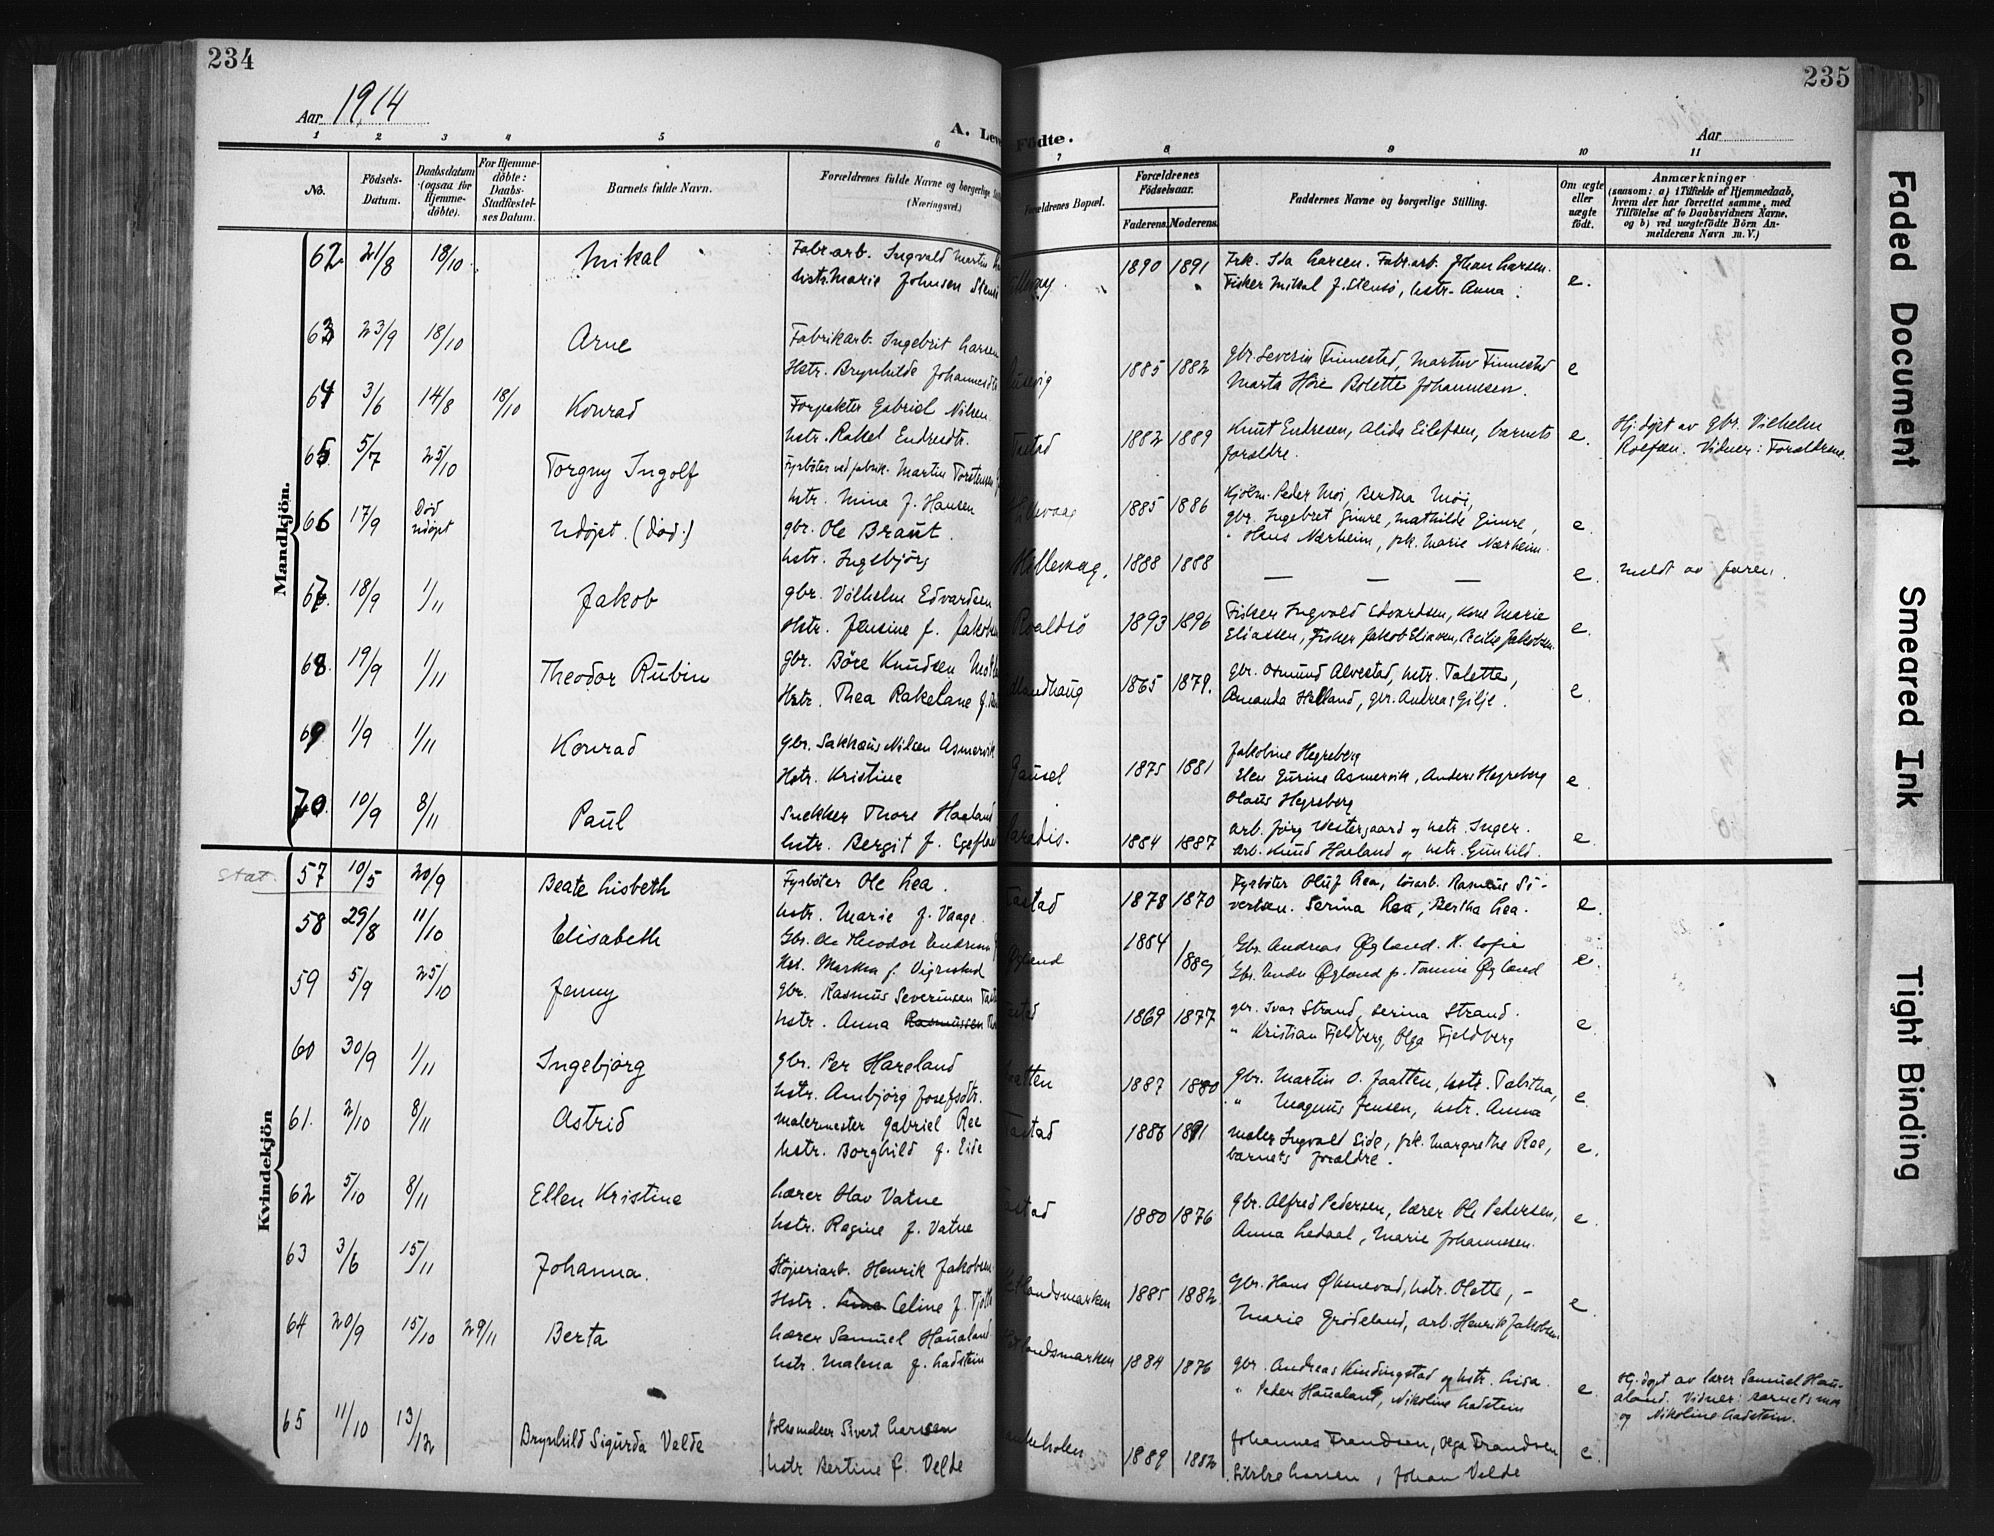 234
235
Aar 1914
Aar
A. Leve
Födte.
1 2 3 4 5 6
7 8 9 10 11
No.
Födsels-Datum.
Daabsdatum (ogsaa for Hjemme-döbte).
For Hjemme-döbte: Daabs-Stadfæstel-ses Datum.
Barnets fulde Navn.
Forældrenes fulde Navne og borgerlige Stilling
(Næringsvei.)
Forældrenes Bopæl.
Forældrenes Födselsaar.
Faderens. Moderens.
Faddernes Navne og borgerlige Stilling.
Om ægte eller uægte födt.
Anmærkninger
(saasom: a) i Tilfælde af Hjemmedaab,
hvem der har forrettet samme, med
Tilföielse af to Daabsvidners Navne,
og b) ved uægtefödte Börn An-
melderens Navn m. V.)
Mandkjön.
62 21/8 18/10 Mikal Fabr.arb. Ingvald Martin 1890 1891 Frk. Ida Larsen. Fabr.arb. Johan Larsen.
hstr. Marie Johnsen Fisker Mikal J. Stensö, hstr. Anna. e.
63 23/9 18/10 Arne Fabrikarb. Ingebrit Larsen
Hstr. Brynhilde 1885 1882 gbr Severin Finnestad, Martin Finnestad e
Marta Höie Bolette Johannesen.
64 3/6 14/8 18/10 Konrad Forpakter Gabriel Nilsen
hstr. Rakel Endresdtr. Tastad 1882 1889 Knut Endresen, Alida Eilefsen, barnets e. Hj.døpt av gbr. Vilhelm
forældre. Vidner: Forældrene.
65 5/7 25/10 Torguy Ingolf Fyrböter ved fabrik. Martin Torstensen
hstr. Mina f. Hansen 1885 1886 Peder Moi, Bertha Moi,
gbr. Ingebret Gimre, Mathilde Gimre, e.
" Hans Nærheim, frk. Marie Nærheim.
66 17/9 Død udøpt Udøpt. (død.) gbr. Ole Braut.
hstr. Ingebjørg Hillevaag. 1888 1888 — — — e. Meldt av faren.
67 18/9 1/11 Jakob gbr. Vilhelm Edvardsen
Hstr. Jensine f. Jakobsen Roaldsö 1893 1896 Fisker Ingvald Edvardsen, kone Marie
Eliassen, Fisker Jakob Eliassen, Cecilie Jakobsen. e.
68 19/9 1/11 Theodor Rubin gbr. Böre Knudsen
Hstr. Thea Rakelane f. 1865 1879. gbr. Osmund Alvestad, hstr. Talette,
Amanda Helland, gbr. Andreas Gilje. e
69 1/9 1/11 Konrad gbr. Sakkæus Nilsen Asmervik
Hstr. Kristine Gausel 1875 1881 Jakobine Hegreberg
Elen Gurine Asmervik, Anders Hegreberg e
Olaus Hegreberg
70. 10/9 8/11 Paul Snekker Thore Haaland
hstr. Bergit f. Paradis. 1884 1887 arb. Jörg Westergaard og hstr. Inger.
arb. Knud Haaland og hstr. Gunhild. e.
Kvindekjön
stat. 57 10/5 20/9 Beate Lisbeth Fyrböter Ole Lea.
hstr. Marie f. Vaage. Tastad 1878 1870 Fyrböter Oluf Lea, lösarb. Rasmus Si-
vertsen. Serina Lea, Bertha Lea. e.
58 29/8 11/10 Elisabeth Gbr. Ole Theodor Endresen
Hst. Martha f. Vigrestad 1884 1889 Gbr. Andreas Øgland. H. Sofie
Gbr. Endre Øgland p. Tomine Øgland e.
59 5/9 25/10 Jenny gbr. Rasmus Severinsen
hstr. Anna Rasmussen 1869 1877 gbr. Ivar Strand, Serina Strand.
" Kristian Fjeldberg, Olga Fjeldberg e
60 30/9 1/11 Ingebjørg gbr. Per Hareland
hstr. Anbjørg Josefsdtr. 1887 1880 gbr. Martin O. Jaatten, hstr. Tabitha,
" Magnus Jensen, hstr. Anna e.
61. 2/10 8/11 Astrid Malermester Gabriel Ree
hstr. Borghild f. Eide Tastad 1886 1891 Maler Ingvald Eide, frk. Margrethe Ree,
barnets forældre. e.
62 5/10 8/11 Ellen Kristine Lærer Olav Vatne
hstr. Ragine f. Vatne 1880 1876 gbr. Alfred Pedersen, lærer Ole Pedersen,
Anna Ledaal, Marie Johannesen. e.
63 3/6 15/11 Johanna. Støperiarb. Henrik Jakobsen
Hstr. Celine f. 1885 1882 gbr. Hans Øksnevad, hstr. Olette, -
Marie Grødeland, arb. Henrik Jakobsen. e
64 20/9 15/10 29/11 Berta Lærer Samuel Haualand
hstr. Malena f. Ladstein 1884 1876 gbr. Andreas Kindingstad og hstr. Lisa.
" Peder Haualand, Nikoline Ladstein e. Hj.døpt av lærer Samuel Hau-
aland. Vidner: barnets mor
og Nikoline Ladstein.
65 11/10 13/12 Brynhild Sigurda Velde Sivert Larsen
hstr Bertine f. Velde 1889 1882 Johannes Frandsen, Olga Frandsen
Larsen, Johan Velde e.
Faded Document
Smeared Ink
Tight Binding